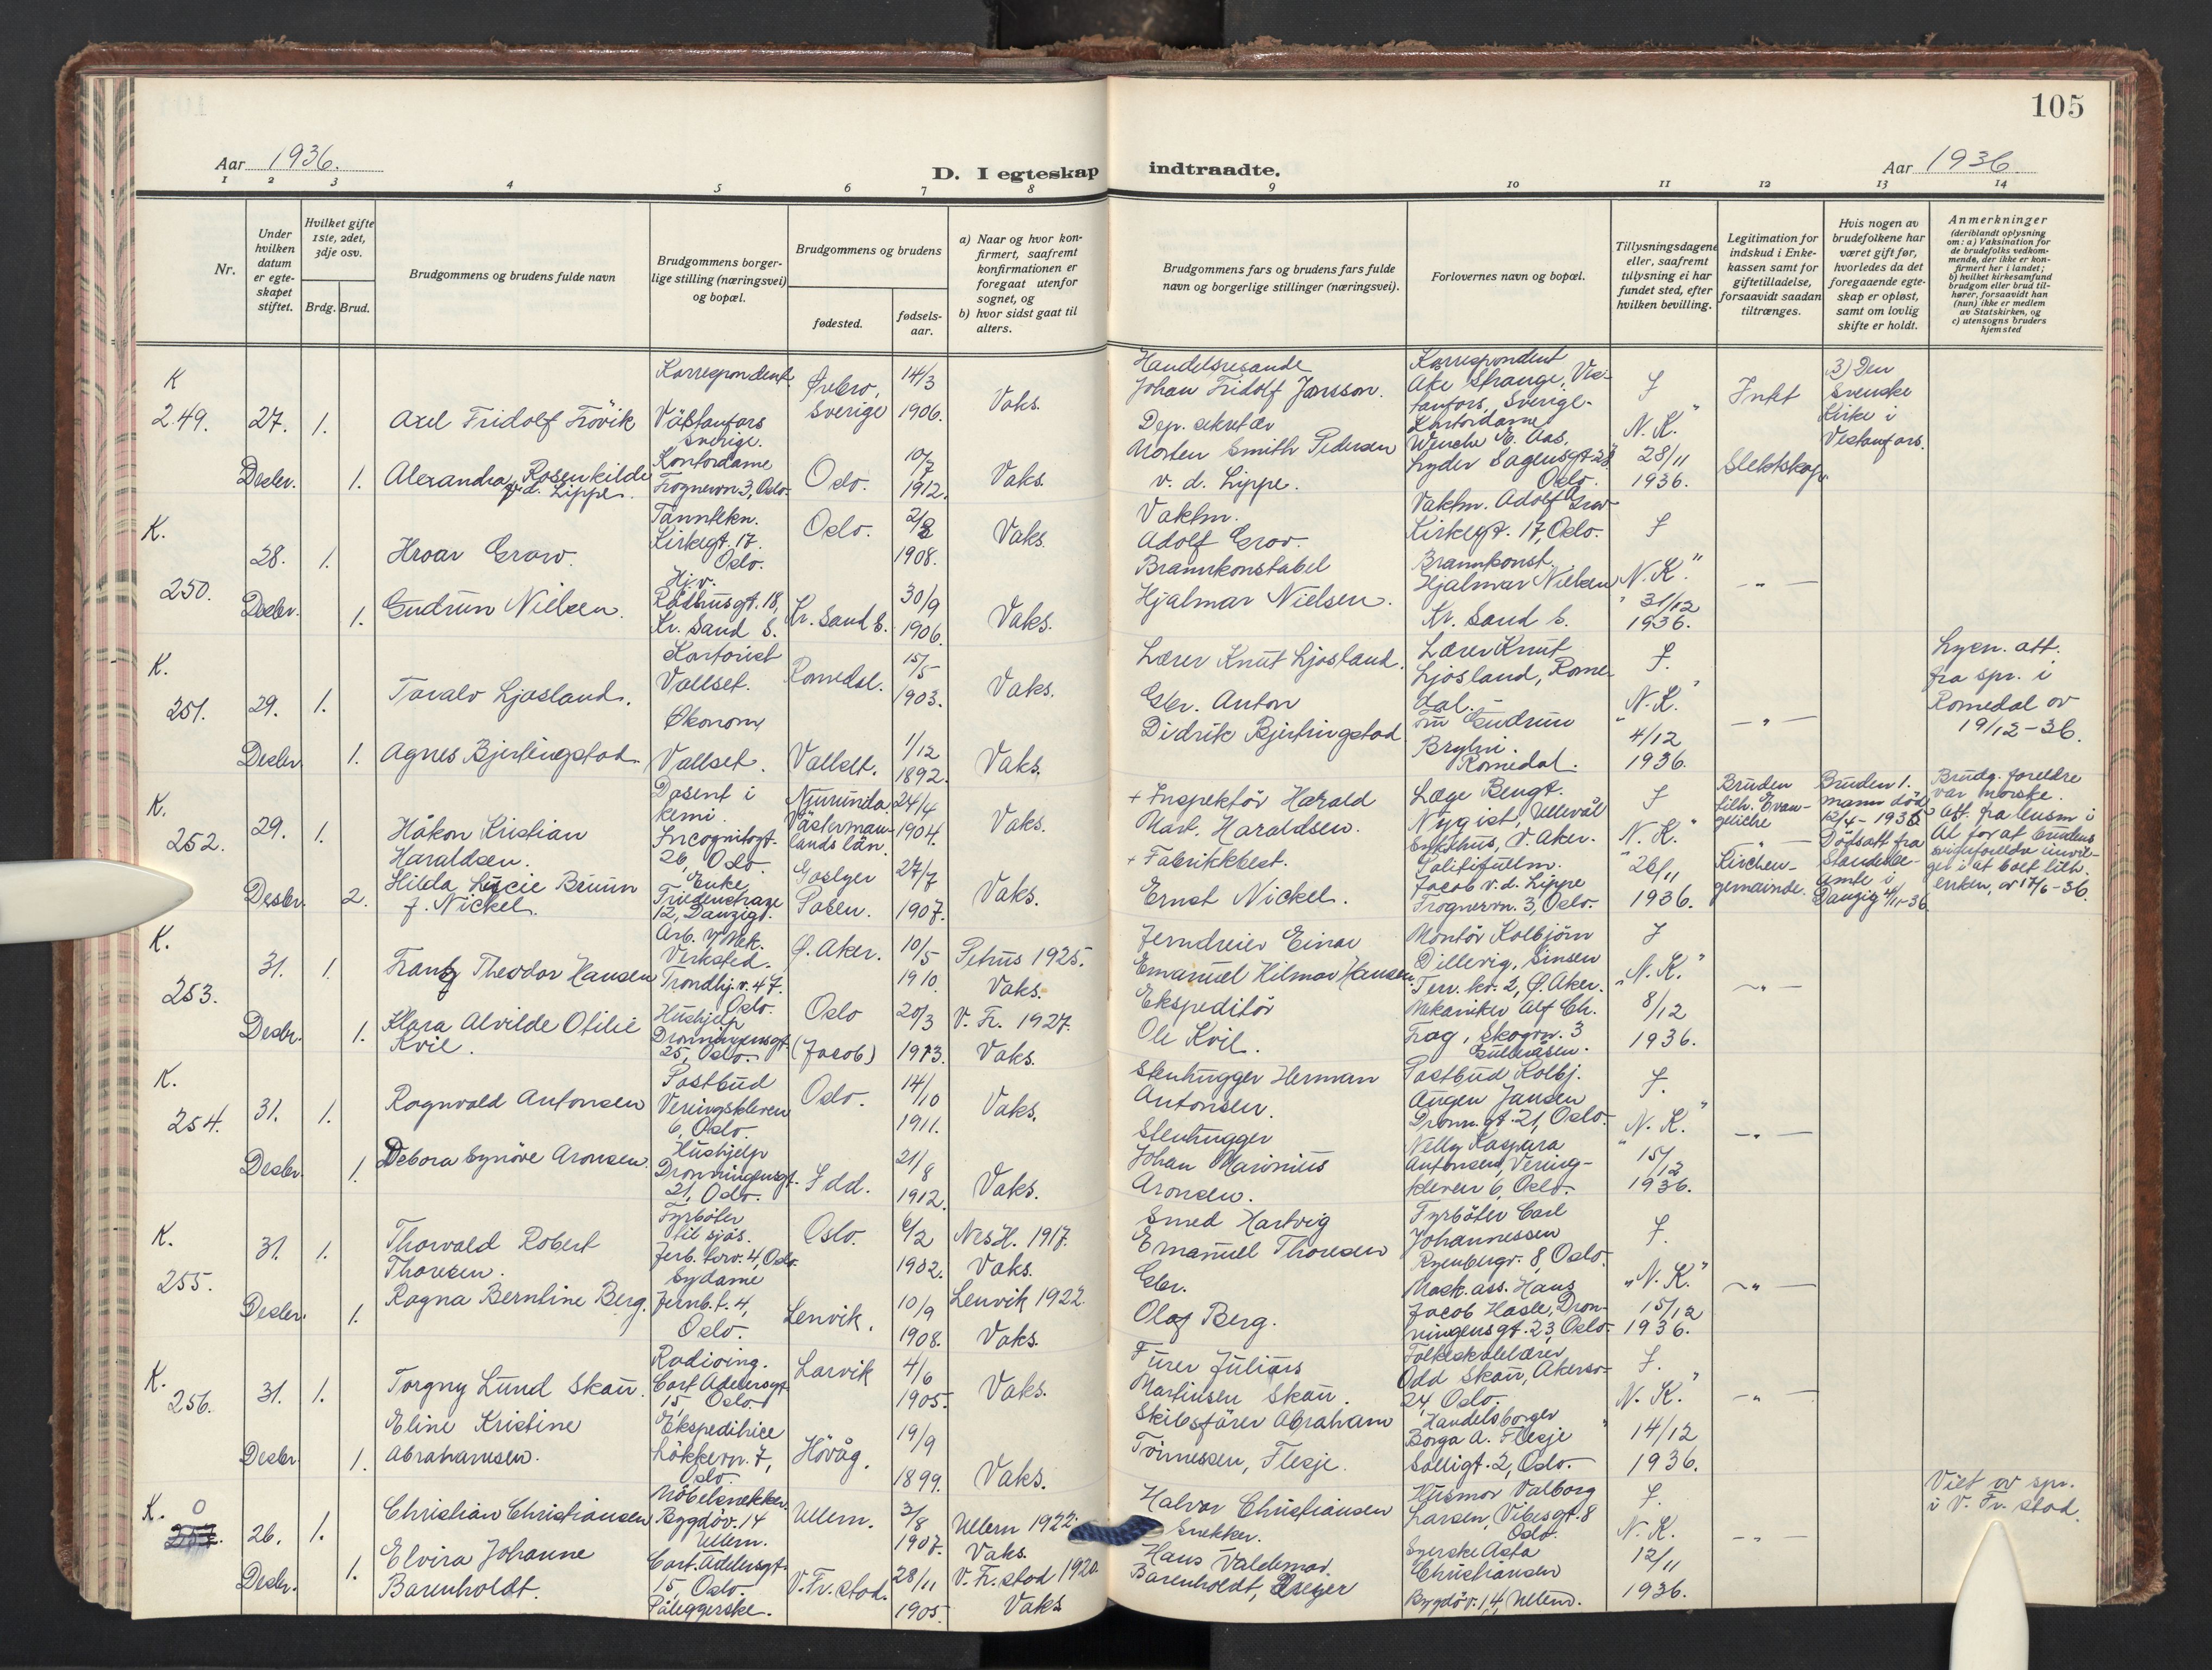 105
Aar 1936.
D. I egteskap indtraadte.
Aar 1936
1 2 3 4 5 6 7 8 9 10 11 12 13 14
Nr.
Under hvilken datum er egteskapet stiftet.
Hvilket gifte 1ste, 2det, 3dje osv.
Brdg. Brud.
Brudgommens og brudens fulde navn
Brudgommens borgerlige stilling (næringsvei) og bopæl.
Brudgommens og brudens
fødested.
fødselsaar.
a) Naar og hvor konfirmert, saafremt konfirmationen er foregaat utenfor sognet, og
b) hvor sidst gaat til alters.
Brudgommens fars og brudens fars fulde navn og borgerlige stillinger (næringsvei).
Forlovernes navn og bopæl.
Tillysningsdagene eller, saafremt tillysning ei har fundet sted, efter hvilken bevilling.
Legitimation for indskud i Enkekassen samt for giftetilladelse, forsaavidt saadan tiltrænges.
Hvis nogen av brudefolkene har været gift før, hvorledes da det foregaaende egteskap er opløst, samt om lovlig skifte er holdt.
Anmerkninger
(deriblandt oplysning om: a) Vaksination for de brudefolks vedkommende, der ikke er konfirmert her i landet; b) hvilket kirkesamfund brudgom eller brud tilhører, forsaavidt han (hun) ikke er medlem av Statskirken, og c) utensogns bruders hjemsted
K
249.
27. Desbr.
1.
Axel Fridolf Frövik
Korrespondent
Västanfors
Sverige.
Örebro, Sverige
14/3 1906.
Vaks.
Handelsresande
Johan Fridolf Jansson.
Korrespondent
Åke Strange, Vestanfors, Sverige.
f
"N. K."
28/11 1936.
Intet
Slektskap
3) Den Svenske Kirke i Vestanfors.
1.
Alexandra Rosenkilde
v. d. Lippe.
Kontordame
Frognervn. 3, Oslo.
Oslo.
10/7 1912.
Vaks.
Dep. sekretær
Morten Smith Pedersen
v. d. Lippe.
Kontordame
Wenche E. Aas,
Lyder Sagensgt 23
Oslo.
K.
250.
28. Desbr.
1.
Hroar Grav.
Tanntekn.
Kirkegt. 17.
Oslo.
Oslo.
1908.
Vaks.
Vaktm.
Adolf Grov.
Vaktm. Adolf Grov
Kirkegt. 17, Oslo.
f
"N. K."
31/12 1936.
1.
Gudrun Nielsen.
Hj.v.
Rådhusgt. 18,
Kr. Sand S.
Kr. Sand S.
30/9 1906.
Vaks.
Brannkonstabel
Hjalmar Nielsen.
Brannkonst.
Hjalmar Nielsen
Kr. Sand S.
K.
251.
29. Desbr.
1.
Taralv Ljosland.
Kontorist
Vallset.
Romedal.
15/5 1903.
Vaks.
Lærer Knut Ljosland.
Lærer Knut
Ljosland, Romedal.
f.
"N. K."
4/12 1936.
Lysn. att.
fra spr. i
Romedal av
19/12-36.
1.
Agnes Bjertingstad.
Økonom
Vallset.
Vallset.
1/12 1892.
Vaks.
Gbr. Anton
Didrik Bjertingstad
Gudrun
Romedal.
K.
252.
29. Desbr.
1.
Håkon Kristian
Haraldsen.
Dosent i
kemi.
Incognitogt.
26, Oslo.
Njurunda
Västernorrlands län.
24/4 1904.
Vaks.
+ Inspektör Harald
Mart. Haraldsen.
Læge Bengt.
Nygist, Ullevål
Sykehus, V. Aker.
f
"N. K."
26/11 1936.
Bruden
tilh. Evangeliche
Kirchengemeinde.
Bruden 1.
mann död
12/4-1935
Dåpsatt fra
Standesamte i
Danzig 4/11-36.
Brudg. foreldre
var norske.
1.
2.
Hilda Lucie Bruun
f. Nickel.
Enke
12, Danzig.
Goslyer
Posen.
27/7 1907.
Vaks.
+ Fabrikkbest.
Ernst Nickel.
Politifullm.
Jacob v. d. Lippe
Frognervn. 3, Oslo.
K.
253.
31. Desbr.
1.
Frantz Theodor Hansen
Arb. v/ Mek.
Verksted.
Trondhj.v. 47.
Oslo.
Ø. Aker.
10/5 1910.
Petrus 1925.
Vaks.
Jerndreier Einar
Emanuel Hilmar Hansen.
Montör Kolbjörn
Dillevig, Sinsen
Terr. kv. 2, Ø. Aker.
f
"N. K."
8/12 1936.
1.
Klara Alvilde Otilie
Kvil.
Hushjelp
Dronningensgt.
25, Oslo.
Oslo
(Jacob)
20/3 1913.
V. Fr. 1927.
Vaks.
Ekspeditör
Ole Kvil.
Mekaniker Alf Ch.
Frag, Skogvn. 3
K.
254.
31. Desbr.
1.
Ragnvald Antonsen
Postbud
Veringskleven
6, Oslo.
Oslo.
14/10 1911.
Vaks.
Stenhugger Herman
Antonsen.
Postbud Kolbj.
Augen Jansen
Dronn. gt. 21, Oslo.
f.
"N. K."
15/12 1936.
1.
Debora Synöve Aronsen.
Hushjelp
Dronningensgt.
21, Oslo.
Idd.
21/8 1912.
Vaks.
Stenhugger
Johan Marinius
Aronsen.
Nelly Kaspara
Antonsen, Veringkleven 6, Oslo.
K.
255.
31. Desbr.
1.
Thorvald Robert
Thoresen.
Fyrböter
til sjös.
Jerb. torv. 4, Oslo.
Oslo.
6/2 1902.
Nes H. 1917.
Vaks.
Smed Hartvig
Emanuel Thoresen
Fyrböter Carl
Johannessen
Ryenbergv. 8, Oslo.
f.
"N. K."
15/12 1936.
1.
Ragna Berntine Berg.
Sydame
Jernb.t. 4,
Oslo.
Lenvik.
10/9 1908.
Lenvik 1922.
Vaks.
Gbr.
Olaf Berg.
Mask. ass. Hans
Jacob Hasle, Dronningensgt. 23, Oslo.
K.
256.
31. Desbr
1.
Torgny Lund Skau.
Radioing.
Cort Adelersgt.
15, Oslo.
Larvik
4/6 1905.
Vaks.
Furer Julius
Martinsen Skau.
Folkeskolelærer
Odd Skau, Akersv.
24, Oslo.
f.
N. K."
14/12 1936.
1.
Eline Kristine
Abrahamsen.
Ekspeditrice
Lökkevn. 7,
Oslo.
Hövåg.
19/9 1899.
Vaks.
Skibsförer Abraham
Tönnessen, Flesje.
Handelsborger
Borga A. Flesje
Solligt. 2, Oslo.
K. 0
257.
26. Desbr.
1.
Christian Christiansen
Möbelsnekker.
Bygdöv. 14
Ullern.
Ullern.
3/8 1907.
Ullern 1922.
Vaks.
Halvor Christiansen
Snekker.
Husmor Valborg
Larsen, Vibesgt. 8
Oslo.
f.
N. K.
12/11 1936.
Viet av spr.
i V. Fr. stad.
1.
Elvira Johanne
Barenholdt.
Cort. Adelersgt.
15, Oslo.
Påleggerske.
V. Fr. stad.
28/11 1905.
V. Fr. stad 1920.
Vaks
Hans Valdemar
Barenholdt,
Syerske Asta
Christiansen
Bygdöv. 14, Ullern.